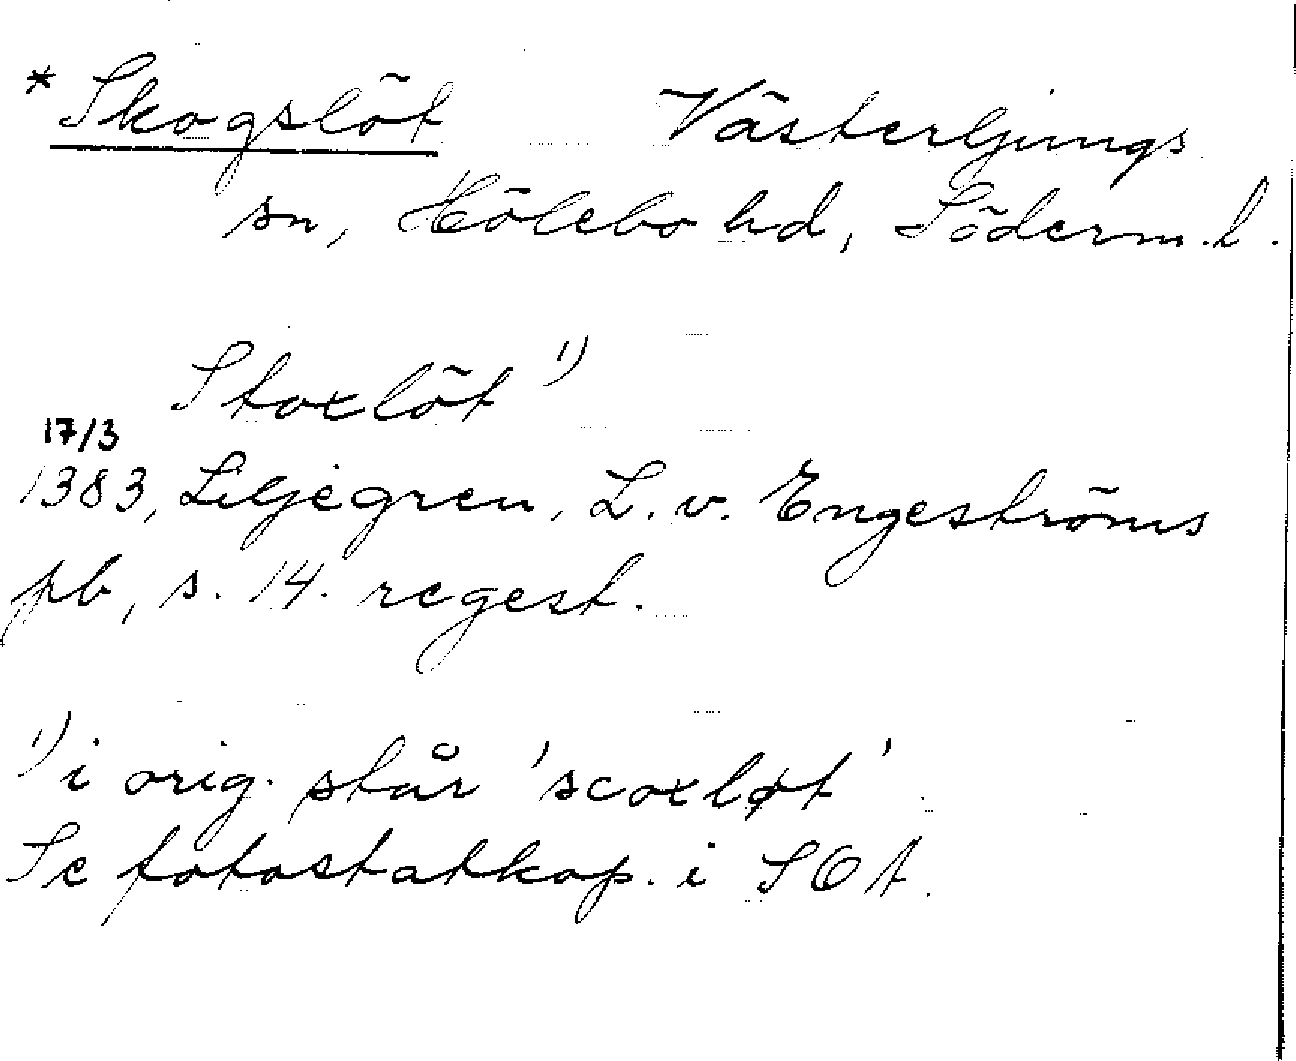 *Skogslöt Västerljungs
sn, Hölebo hd, Söderm. l.
Stoxlöt 1)
17/3
1383, Liljegren, L. v. Engeströms
pb, s. 14. regest.
1) i orig. står 'scoxløt'
Se fotostatkop. i SOA.